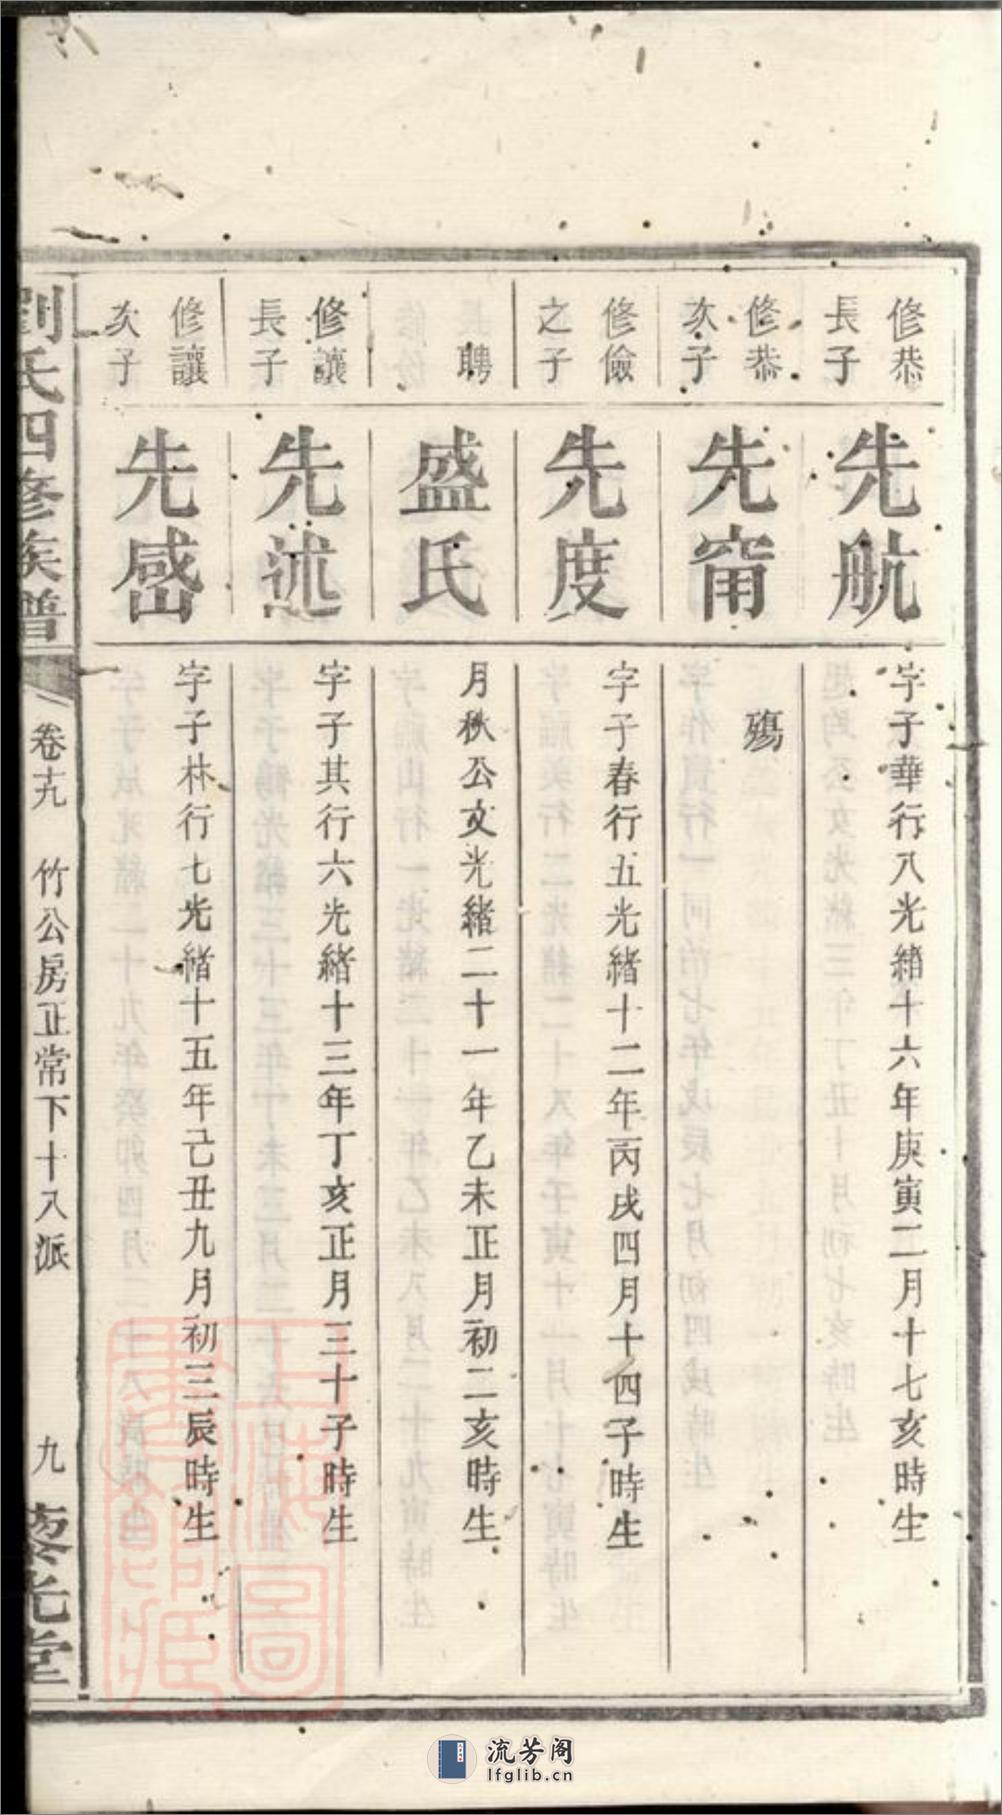 修恭
長子
先航
字子華行八光緒十六年庚寅二月十七亥時生
修恭
次子
先甯
殤
修儉
之子
先度
字子春行五光緒十二年丙戌四月十四子時生
聘
盛氏
月秋公女光緒二十一年乙未正月初二亥時生
修讓
長子
先述
字子其行六光緒十三年丁亥正月三十子時生
修讓
次子
先感
字子林行七光緒十五年己丑九月初三辰時生
劉氏四修族譜
卷十九
竹公房正常下十八派
九
藜光堂
上海圖書館藏
流芳阁
lfglib.cn